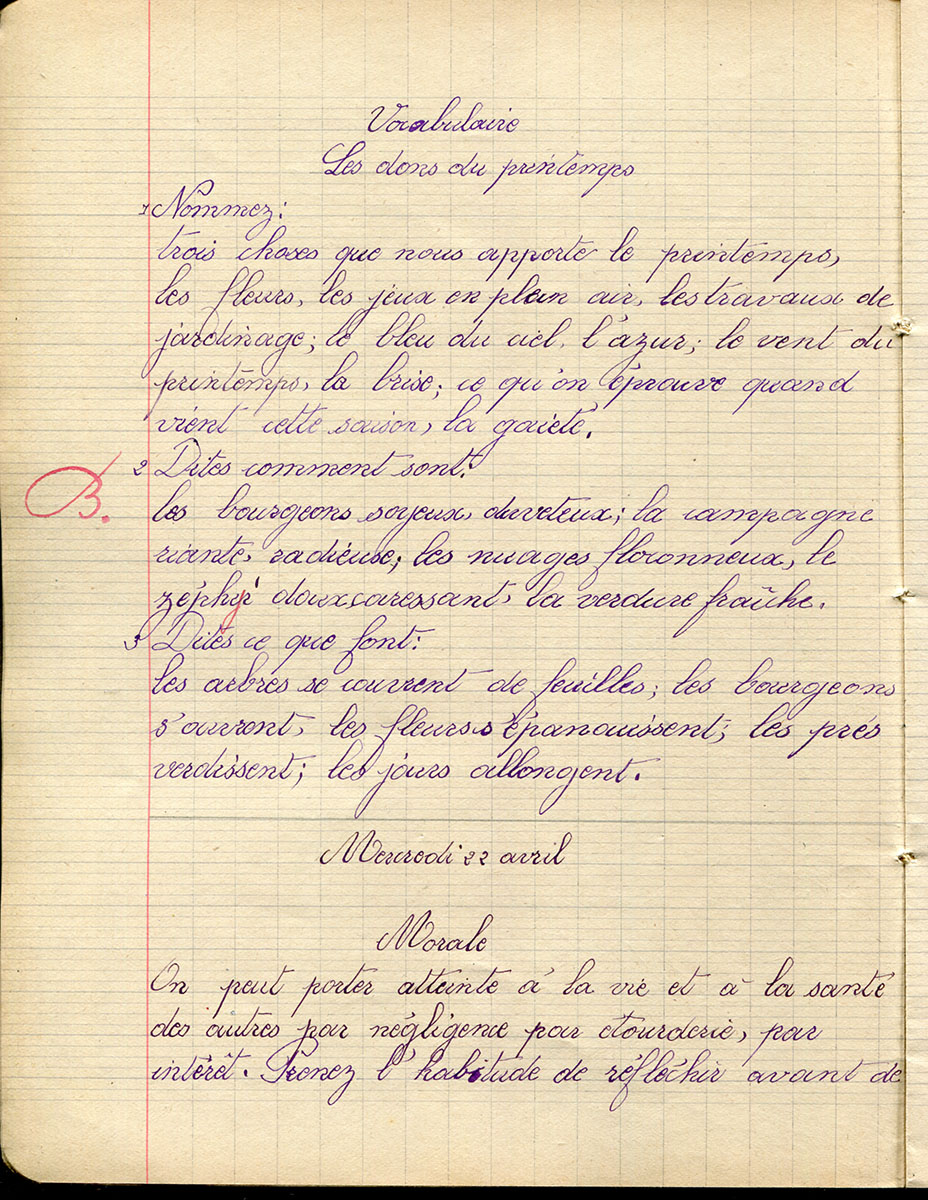 Vocabulaire
Les dons du printemps
1 Nommez:
trois choses que nous apporte le printemps,
les fleurs, les jeux en plein air, les travaux de
jardinage; le bleu du ciel, l'azur; le vent du
printemps, la brise; ce qu'on éprouve quand
vient cette saison, la gaieté.
2 Dites comment sont:
B.
les bourgeons soyeux, duveteux; la campagne
riante, radieuse; les nuages floconneux, le
zéphyr doux caressant, la verdure fraîche.
3 Dites ce que font:
les arbres se couvrent de feuilles; les bourgeons
s'ouvrent, les fleurs s'épanouissent; les prés
verdissent; les jours allongent.
Mercredi 22 avril
Morale
On peut porter atteinte à la vie et à la santé
des autres par négligence par étourderie, par
intérêt. Prenez l'habitude de réfléchir avant de